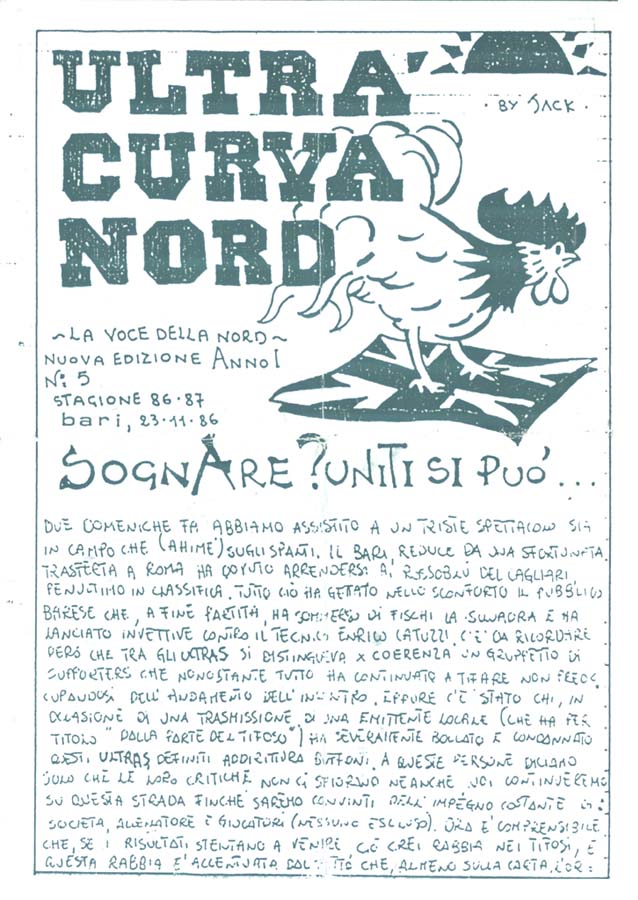 ULTRA'
· BY JACK ·
CURVA
NORD
~LA VOCE DELLA NORD~
NUOVA EDIZIONE ANNO I
N: 5
STAGIONE 86·87
bari, 23·11·86
SOGNARE ? UNITI SI PUO' ...
DUE DOMENICHE FA ABBIAMO ASSISTITO A UN TRISTE SPETTACOLO SIA
IN CAMPO CHE (AHIME') SUGLI SPALTI. IL BARI, REDUCE DA UNA SFORTUNATA
TRASFERTA A ROMA HA DOVUTO ARRENDERSI AI ROSSOBLU DEL CAGLIARI,
PENULTIMO IN CLASSIFICA. TUTTO CIO' HA GETTATO NELLO SCONFORTO IL PUBBLICO
BARESE CHE, A FINE PARTITA, HA SOMMERSO DI FISCHI LA SQUADRA E HA
LANCIATO INVETTIVE CONTRO IL TECNICO ENRICO CATUZZI. C'E' DA RICORDARE
PERO' CHE TRA GLI ULTRAS SI DISTINGUEVA X COERENZA UN GRUPPETTO DI
SUPPORTERS CHE NONOSTANTE TUTTO HA CONTINUATO A TIFARE NON PREOC
CUPANDOSI DELL'ANDAMENTO DELL'INCONTRO. EPPURE C'E' STATO CHI, IN
OCCASIONE DI UNA TRASMISSIONE DI UNA EMITTENTE LOCALE (CHE HA PER
TITOLO "DALLA PARTE DEL TIFOSO") HA SEVERAMENTE BOLLATO E CONDANNATO
QUESTI ULTRAS DEFINITI ADDIRITTURA BUFFONI. A QUESTE PERSONE DICIAMO
SOLO CHE LE LORO CRITICHE NON CI SFIORANO NEANCHE. NOI CONTINUEREMO
SU QUESTA STRADA FINCHE' SAREMO CONVINTI DELL'IMPEGNO COSTANTE DI:
SOCIETA', ALLENATORE E GIOCATORI (NESSUNO ESCLUSO). ORA E' COMPRENSIBILE
CHE, SE I RISULTATI STENTANO A VENIRE CIO' CREI RABBIA NEI TIFOSI, E
QUESTA RABBIA E' ACCENTUATA DAL FATTO CHE, ALMENO SULLA CARTA, L'OR: